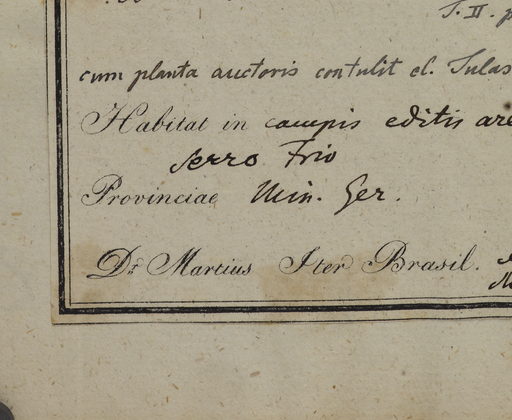 T. II. p
cum planta auctoris contulit cl. Tulas
Habitat in campis editis are
Serro Frio
Provinciae Min. Ger.
Dr. Martius Iter Brasil.